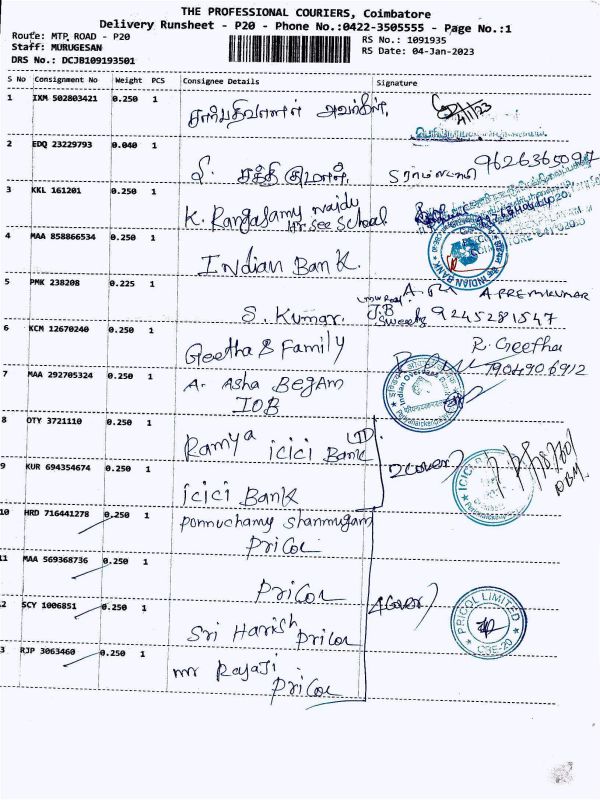 THE PROFESSIONAL COURIERS, Coimbatore
Delivery Runsheet - P20 - Phone No.:0422-3505555 - Page No.:1
Route: MTP ROAD - P20
Staff: MURUGESAN
DRS No.: DCJB109193501
RS No.: 1091935
RS Date: 04-Jan-2023
S No Consignment No Weight PCS Consignee Details Signature
1 IXM 502803421 0.250 1 4/1/23
2 EDQ 23229793 0.040 1 சக்தி குமார், 9626365097
3 KKL 161201 0.250 1 K. Rangasamy Naidu
Hr. Sec School
4 MAA 858866534 0.250 1 Indian Bank. INDIAN BANK
5 PMK 238208 0.225 1 S. Kumar. A PREMKUMAR
9245281547
6 KCM 12670240 0.250 1 Geetha & Family R. Geetha
7904906912
7 MAA 292705324 0.250 1 A. Asha Begam
IOB
Indian Overseas Bank
8 OTY 3721110 0.250 1 Ramya icici Bank LTD.
2 Cover
9 KUR 694354674 0.250 1 icici Bank
10 HRD 716441278 0.250 1 ponnuchamy shanmugam
Pricol
11 MAA 569368736 0.250 1 Pricol
4 Cover
12 SCY 1006851 0.250 1 Sri Harish Pricol
PRICOL LIMITED
CBE-20
3 RJP 3063460 0.250 1 mr Rajaji
Pricol